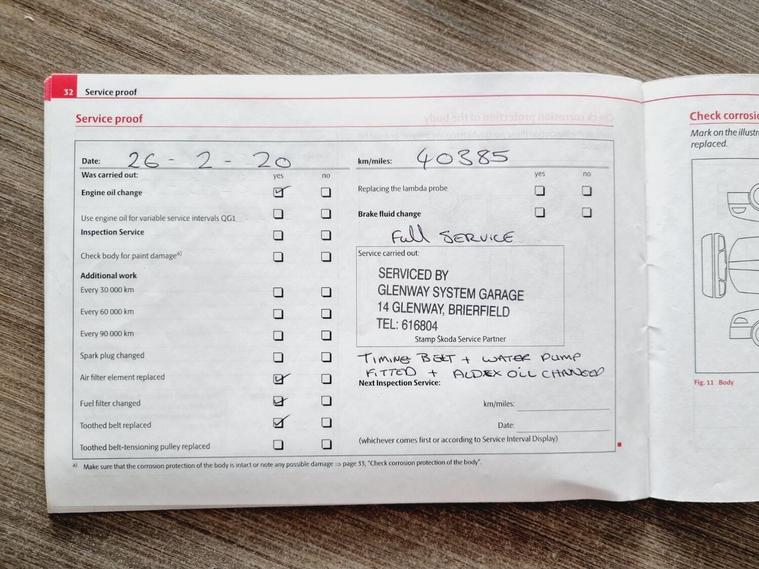 32 Service proof
Service proof
Date: 26 - 2 - 20
km/miles: 40385
Was carried out: yes no
Engine oil change
Use engine oil for variable service intervals QG1
Inspection Service
Check body for paint damage a)
Additional work
Every 30 000 km
Every 60 000 km
Every 90 000 km
Spark plug changed
Air filter element replaced
Fuel filter changed
Toothed belt replaced
Toothed belt-tensioning pulley replaced
yes no
Replacing the lambda probe
Brake fluid change
Full SERVICE
Service carried out:
SERVICED BY
GLENWAY SYSTEM GARAGE
14 GLENWAY, BRIERFIELD
TEL: 616804
Stamp Škoda Service Partner
TIMING BELT + WATER PUMP
FITTED + ALDEX OIL CHANGED
Next Inspection Service:
km/miles:
Date:
(whichever comes first or according to Service Interval Display)
a) Make sure that the corrosion protection of the body is intact or note any possible damage ⇒ page 33, "Check corrosion protection of the body".
Check corrosi
Mark on the illustr
replaced.
Fig. 11 Body